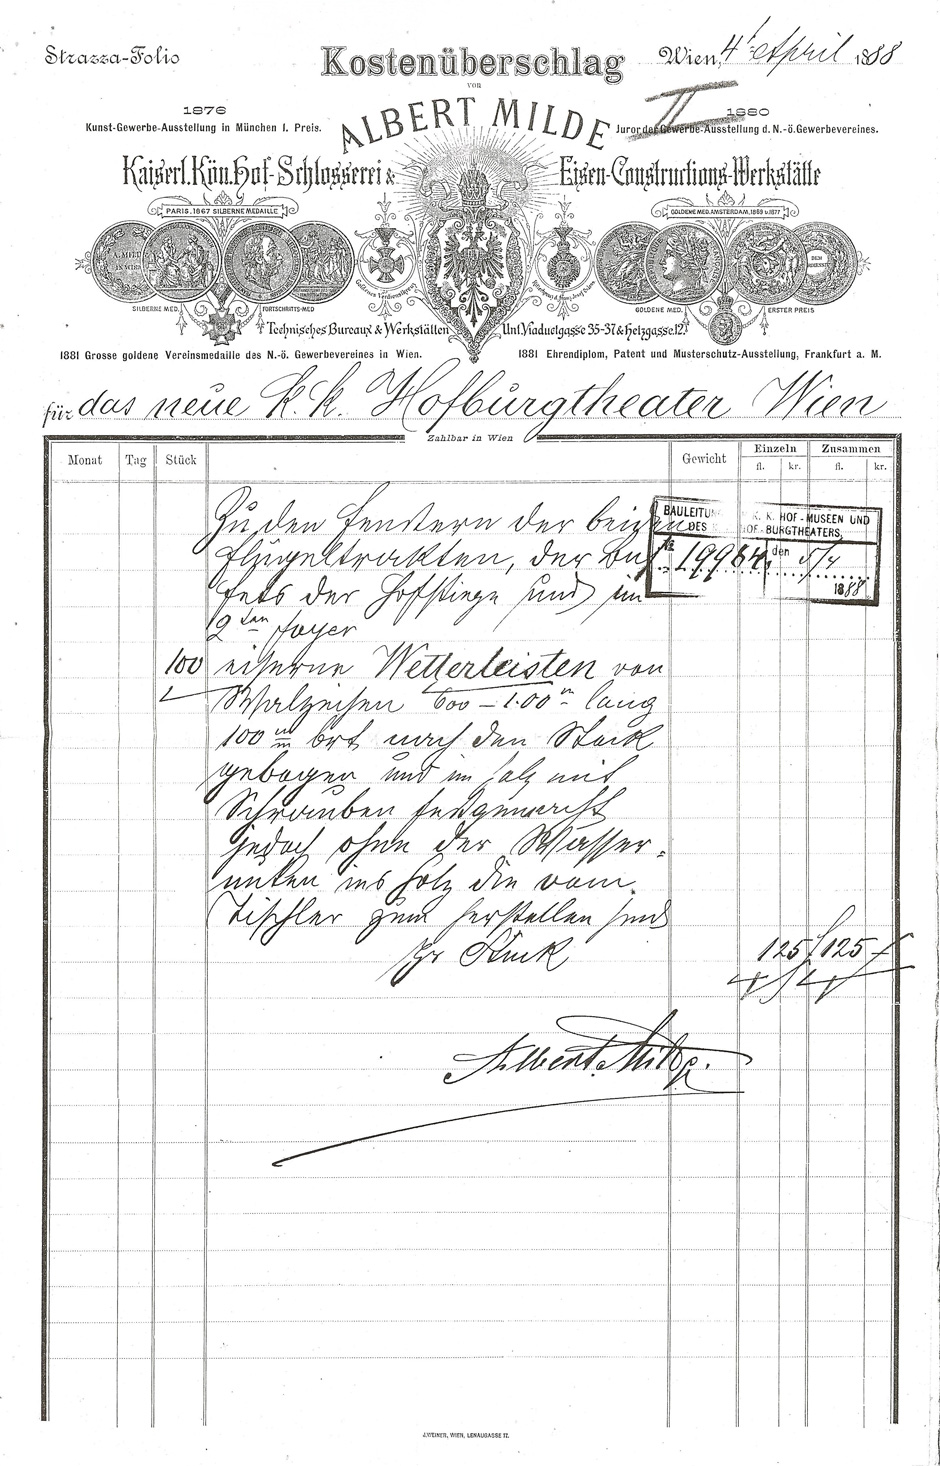 Strazza-Folio
Kostenüberschlag
Wien, 4t April 1888
von
ALBERT MILDE
II
1876
Kunst-Gewerbe-Ausstellung in München I. Preis.
1880
Juror der Gewerbe-Ausstellung d. N.-ö. Gewerbevereines.
Kaiserl. Kön. Hof-Schlosserei &
Eisen-Constructions-Werkstätte
PARIS. 1867 SILBERNE MEDAILLE
GOLDENE MED. AMSTERDAM. 1869 u. 1877
SILBERNE MED.
FORTSCHRITTS-MED
GOLDENE MED.
ERSTER PREIS
Technisches Bureaux & Werkstätten
Unt. Viaductgasse 35-37 & Hetzgasse 12.
1881 Grosse goldene Vereinsmedaille des N.-ö. Gewerbevereines in Wien.
1881 Ehrendiplom, Patent und Musterschutz-Ausstellung, Frankfurt a. M.
für das neue k. k. Hofburgtheater Wien
Zahlbar in Wien
Monat Tag Stück Gewicht Einzeln Zusammen
fl. kr. fl. kr.
BAULEITUNG K. K. HOF-MUSEEN UND
DES HOF-BURGTHEATERS
№ 19964 den 5/4
1888
Zu den Fenstern der beiden
Flügeltrakten, der Buf
fets der Hofstiege und im
2ten Foyer
100 eiserne Wetterleisten von
Walzeisen 600 – 1.00 m lang
100 m/m brt nach den Stock
gebogen und im Holz mit
Schrauben festgemacht
jedoch ohne der Wasser-
nuten ins Holz die vom
Tischler zum herstellen sind
pr Stück 125 f 125
Albert Milde
J. WEINER, WIEN, LENAUGASSE 17.